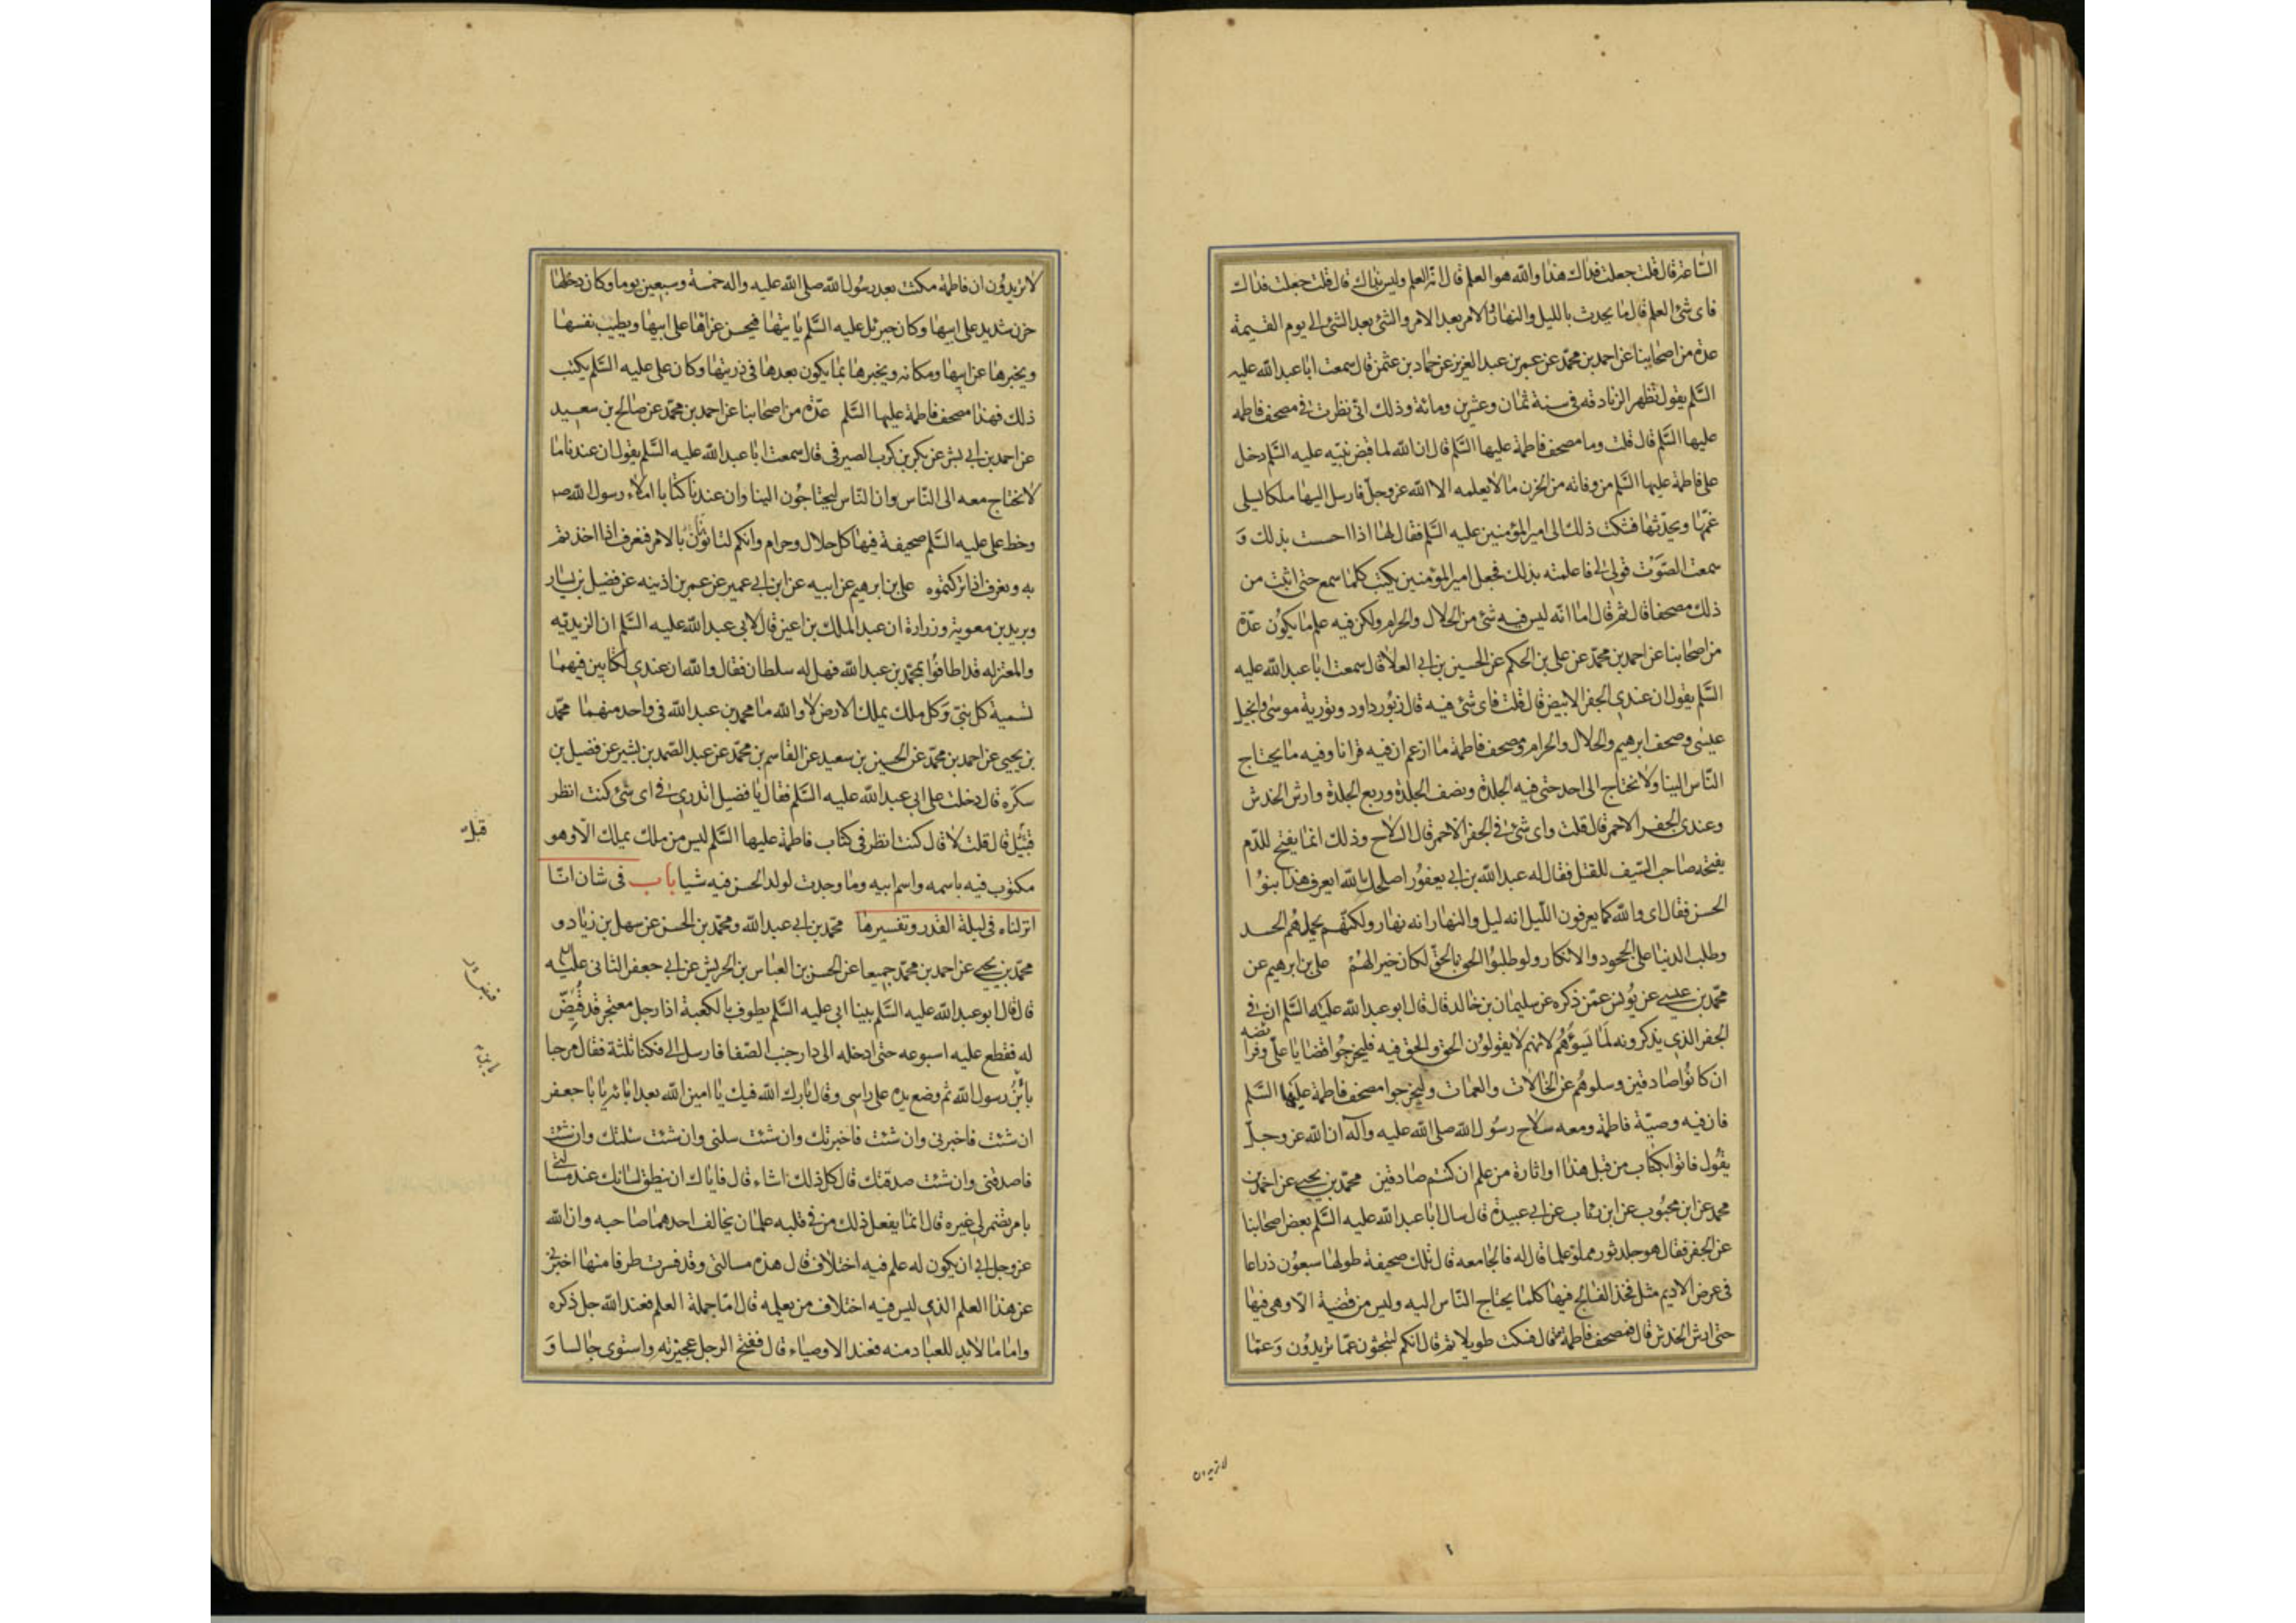 الساعة قال قلت جعلت فداك هذا والله هو العلم قال انه لعلم وليس بذاك قال قلت جعلت فداك
فاى شئ العلم قال ما يحدث بالليل والنهار الامر بعد الامر والشئ بعد الشئ الى يوم القيمة
عدة من اصحابنا عن احمد بن محمد عن عمر بن عبد العزيز عن حماد بن عثمن قال سمعت ابا عبد الله عليه
السلم يقول تظهر الزنادقه فى سنة ثمان وعشرين ومائة وذلك انى نظرت فى مصحف فاطمه
عليها السلم قال قلت وما مصحف فاطمة عليها السلم قال ان الله لما قبض نبيه عليه السلم دخل
على فاطمة عليها السلم من وفاته من الحزن ما لا يعلمه الا الله عز وجل فارسل اليها ملكا يسلى
غمها ويحدثها فشكت ذلك الى امير المؤمنين عليه السلم فقال لها اذا احست بذلك و
سمعت الصوت قولى لى فاعلمته بذلك فجعل امير المؤمنين يكتب كلما سمع حتى اثبت من
ذلك مصحفا قال ثم قال اما انه ليس فيه شئ من الحلال والحرام ولكن فيه علم ما يكون عدة
من اصحابنا عن احمد بن محمد عن على بن الحكم عن الحسين بن ابى العلا قال سمعت ابا عبد الله عليه
السلم يقول ان عندى الجفر الابيض قال قلت فاى شئ فيه قال زبور داود وتورية موسى وانجيل
عيسى وصحف ابرهيم والحلال والحرام ومصحف فاطمة ما ازعم ان فيه قرانا وفيه ما يحتاج
الناس الينا ولا نحتاج الى احد حتى فيه الجلدة ونصف الجلدة وربع الجلدة وارش الخدش
وعندى الجفر الاحمر قال قلت واى شئ فى الجفر الاحمر قال السلاح وذلك انما يفتح للدم
يفتحه صاحب السيف للقتل فقال له عبد الله بن ابى يعفور اصلحك الله ايعرف هذا بنو ا
الحسن فقال اى والله كما يعرفون الليل انه ليل والنهار انه نهار ولكنهم يحملهم الحسد
وطلب الدنيا على الجحود والانكار ولو طلبوا الحق بالحق لكان خيرا لهم على بن ابرهيم عن
محمد بن عيسى عن يونس عمن ذكره عن سليمان بن خالد قال قال ابو عبد الله عليه السلم ان فى
الجفر الذى يذكرونه لما يسوؤهم لانهم لا يقولون الحق والحق فيه فليخرجوا قضايا على وفرائضه
ان كانوا صادقين وسلوهم عن الخالات والعمات وليخرجوا مصحف فاطمة عليها السلم
فان فيه وصية فاطمة ومعه سلاح رسول الله صلى الله عليه وآله ان الله عز وجل
يقول فاتوا بكتاب من قبل هذا او اثارة من علم ان كنتم صادقين محمد بن يحيى عن احمد بن
محمد عن ابن محبوب عن ابن رئاب عن ابى عبيدة قال سال ابا عبد الله عليه السلم بعض اصحابنا
عن الجفر فقال هو جلد ثور مملو علما قال له فالجامعه قال تلك صحيفة طولها سبعون ذراعا
فى عرض الاديم مثل فخذ الفالج فيها كلما يحتاج الناس اليه وليس من قضية الا وهى فيها
حتى ارش الخدش قال فمصحف فاطمة قال فسكت طويلا ثم قال انكم لتبحثون عما تريدون وعما
لا تريدون
لا تريدون ان فاطمة مكثت بعد رسول الله صلى الله عليه واله خمسة وسبعين يوما وكان دخلها
حزن شديد على ابيها وكان جبرئل عليه السلم ياتيها فيحسن عزاها على ابيها ويطيب نفسها
ويخبرها عن ابيها ومكانه ويخبرها بما يكون بعدها فى ذريتها وكان على عليه السلم يكتب
ذلك فهذا مصحف فاطمة عليها السلم عدة من اصحابنا عن احمد بن محمد عن صالح بن سعيد
عن احمد بن ابى بشر عن بكر بن كرب الصيرفى قال سمعت ابا عبد الله عليه السلم يقول ان عندنا ما
لا نحتاج معه الى الناس وان الناس ليحتاجون الينا وان عندنا كتابا املاء رسول الله ص
وخط على عليه السلم صحيفة فيها كل حلال وحرام وانكم لتاتون بالامر فنعرف اذا اخذتم
به ونعرف اذا تركتموه على بن ابرهيم عن ابيه عن ابن ابى عمير عن عمر بن اذينه عن فضيل بن يسار
وبريد بن معوية وزرارة ان عبد الملك بن اعين قال لابى عبد الله عليه السلم ان الزيديه
والمعتزله قد اطافوا بمحمد بن عبد الله فهل له سلطان فقال والله ان عندى لكتابين فيهما
تسمية كل نبى وكل ملك يملك الارض لا والله ما محمد بن عبد الله فى واحد منهما محمد
بن يحيى عن احمد بن محمد عن الحسين بن سعيد عن القاسم بن محمد عن عبد الصمد بن بشير عن فضيل بن
سكره قال دخلت على ابى عبد الله عليه السلم فقال يا فضيل اتدرى فى اى شئ كنت انظر
قبيل قال قلت لا قال كنت انظر فى كتاب فاطمة عليها السلم ليس من ملك يملك الا وهو
مكتوب فيه باسمه واسم ابيه وما وجدت لولد الحسن فيه شيا باب فى شان انا
انزلناه فى ليلة القدر وتفسيرها محمد بن ابى عبد الله ومحمد بن الحسن عن سهل بن زياد و
محمد بن يحيى عن احمد بن محمد جميعا عن الحسن بن العباس بن الحريش عن ابى جعفر الثانى عليه السلم
قال قال ابو عبد الله عليه السلم بينا ابى عليه السلم يطوف بالكعبة اذا رجل معتجر قد قيض
له فقطع عليه اسبوعه حتى ادخله الى دار جنب الصفا فارسل الى فكنا ثلثة فقال مرحبا
يا بن رسول الله ثم وضع يده على راسى وقال بارك الله فيك يا امين الله بعد ابائه يا با جعفر
ان شئت فاخبرنى وان شئت فاخبرتك وان شئت سلنى وان شئت سئلتك وان شئت
فاصدقنى وان شئت صدقتك قال كل ذلك اشاء قال فاياك ان ينطق لسانك عند مسالتى
بامر تضمر لى غيره قال انما يفعل ذلك من فى قلبه علمان يخالف احدهما صاحبه وان الله
عز وجل ابى ان يكون له علم فيه اختلاف قال هذه مسالتى وقد فسرت طرفا منها اخبرنى
عن هذا العلم الذى ليس فيه اختلاف من يعلمه قال اما جملة العلم فعند الله جل ذكره
واما ما لا بد للعباد منه فعند الاوصياء قال ففتح الرجل عجيرته واستوى جالسا و
قبل